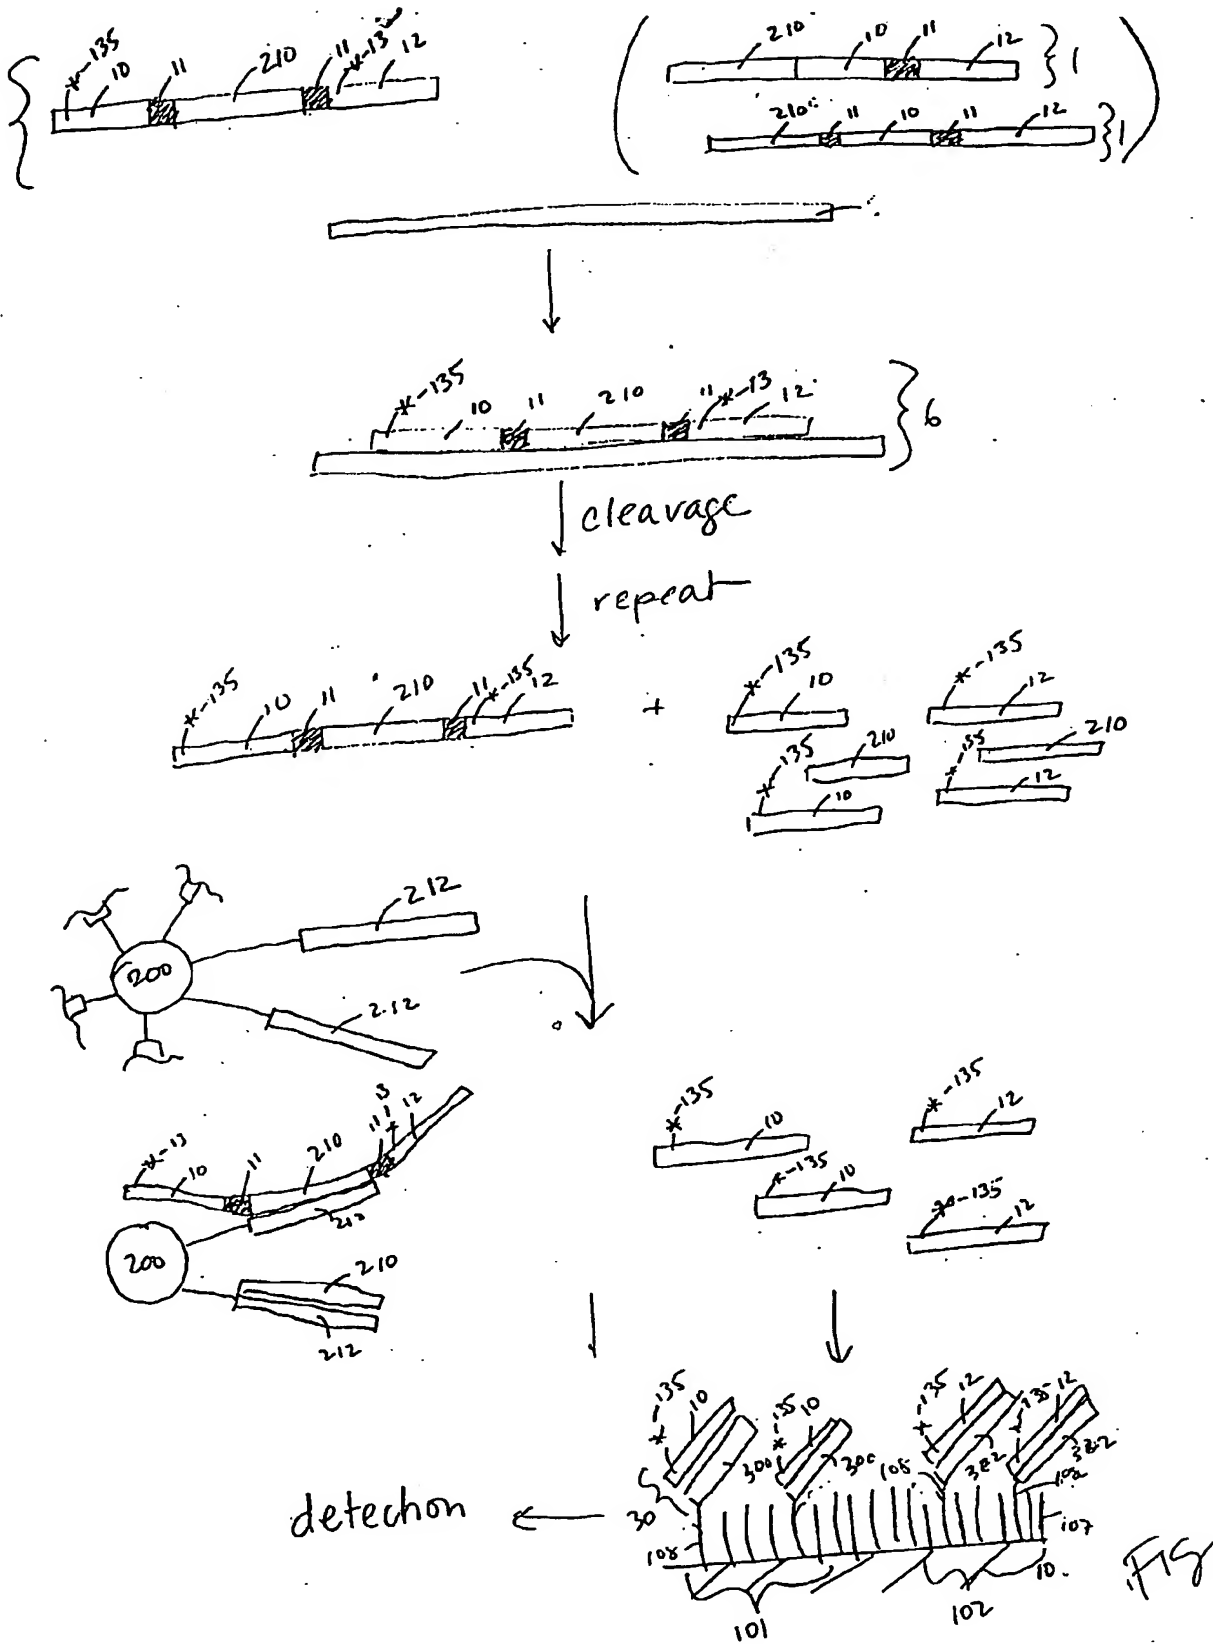 *-135 10 11 210 11 *-13 12
210 10 11 12 } 1
210 11 10 11 12 } 1
*-135 10 11 210 11 *-13 12 } 6
cleavage
repeat
*-135 10 11 210 11 *-135 12
+
*-135 10
*-135 12
210
210
*-135 10
*-135 12
200 212
212
*-135 10
*-135 12
*-13 10 11 210 11 13 12
212
*-135 10
*-135 12
200
210
212
*-135 10 *-135 10 *-135 12 *-135 12
300 300 108 302 302
detection
30
108 107
101 102 10
FIG